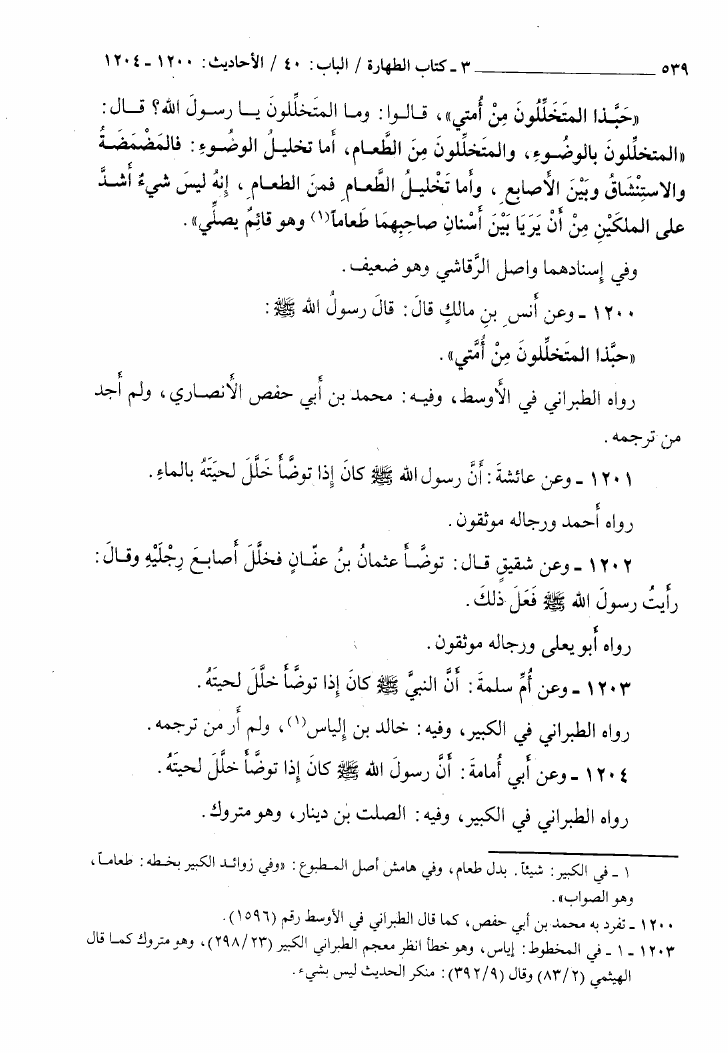 ٥٣٩ ــــــــــــــــــــــ ٣ ـ كتاب الطهارة / الباب: ٤٠ / الأحاديث: ١٢٠٠ ـ ١٢٠٤
«حَبَّذا المتَخَلِّلُونَ مِنْ أُمتي»، قـالـوا: ومـا المتَخلِّلونَ يـا رسـولَ الله؟ قـال:
«المتخلِّلونَ بالوضُـوءِ، والمتخلِّلونَ مِنَ الطَّعـامِ، أما تخليـلُ الوضُـوءِ: فالمَضْمَضَـةُ
والاستِنْشاقُ وبَيْنَ الأصابعِ، وأما تَخْليـلُ الطَّعـامِ فمنَ الطعـامِ، إنهُ ليسَ شيءٌ أشـدَّ
على الملكَيْنِ مِنْ أَنْ يَرَيا بَيْنَ أسْنانِ صاحِبِهمَا طَعاماً(١) وهو قائِمٌ يصلِّي».
وفي إسنادهما واصل الرَّقاشي وهو ضعيف.
١٢٠٠ ـ وعن أَنسِ بنِ مالكٍ قالَ: قالَ رسولُ الله ﷺ:
«حبَّذا المتَخلِّلونَ مِنْ أُمَّتي».
رواه الطبراني في الأوسط، وفيـه: محمـد بن أبي حفص الأنصـاري، ولم أجد
من ترجمه.
١٢٠١ ـ وعن عائشةَ: أنَّ رسول الله ﷺ كانَ إذا توضَّأَ خَلَّلَ لحيَتَهُ بالماءِ.
رواه أحمد ورجاله موثقون.
١٢٠٢ ـ وعن شقيقٍ قـال: توضَّـأَ عثمانُ بنُ عفّـانٍ فخلَّلَ أصابـعَ رِجْلَيْهِ وقـالَ:
رأَيتُ رسولَ الله ﷺ فَعَلَ ذلكَ.
رواه أبو يعلى ورجاله موثقون.
١٢٠٣ ـ وعن أُمِّ سلمةَ: أنَّ النبيَّ ﷺ كانَ إذا توضَّأَ خلَّلَ لحيتَهُ.
رواه الطبراني في الكبير، وفيه: خالد بن إلياس(١)، ولم أر من ترجمه.
١٢٠٤ ـ وعن أبي أُمامةَ: أنَّ رسولَ الله ﷺ كانَ إذا توضَّأَ خلَّلَ لحيتَهُ.
رواه الطبراني في الكبير، وفيه: الصلت بن دينار، وهو متروك.
١ ـ في الكبير: شيئاً. بدل طعام، وفي هامش أصل المـطبوع: «وفي زوائـد الكبير بخـطه: طعامـاً،
وهو الصواب».
١٢٠٠ ـ تفرد به محمد بن أبي حفص، كما قال الطبراني في الأوسط رقم (١٥٩٦).
١٢٠٣ ـ ١ ـ في المخطوط: إياس، وهو خطأ انظر معجم الطبراني الكبير (٢٣/ ٢٩٨)، وهو متروك كمـا قال
الهيثمي (٢/ ٨٣) وقال (٩/ ٣٩٢): منكر الحديث ليس بشيء.